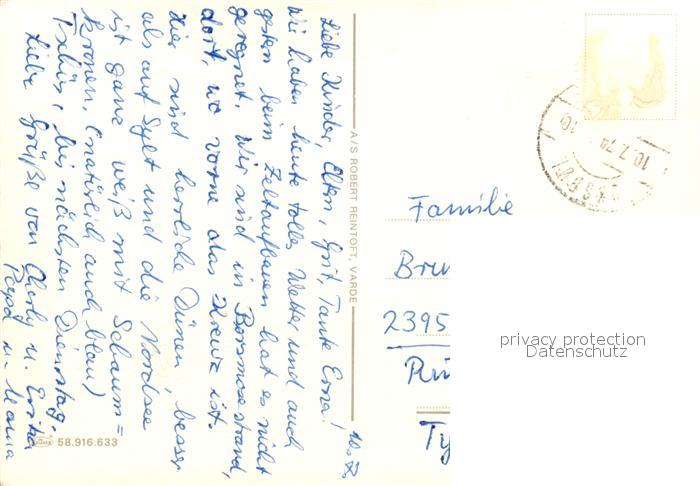 10.7.
Liebe Kinder, Eltern, Grit, Tante Erna!
Wir haben heute tolles Wetter und auch
gestern beim Zeltaufbauen hat es nicht
geregnet. Wir sind in Borsmose strand,
dort, wo vorne das Kreuz ist.
Hier sind herrliche Dünen, besser
als auf Sylt und die Nordsee
ist ganz weiß mit Schaum=
kronen, (natürlich auch blau)
Tschüs, bis nächsten Dienstag.
Liebe Grüße von Charly u. Erika
u. Mama
A/S ROBERT REINTOFT, VARDE
58.916.633
10.7.74
Familie
Bru
2395
Ty
privacy protection
Datenschutz